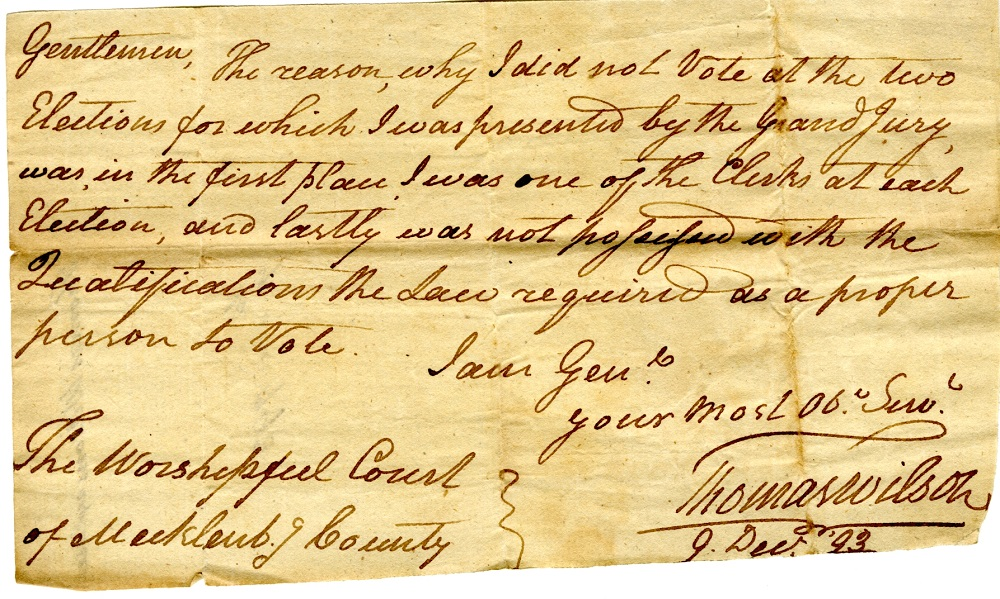 Gentlemen, The reason, why I did not Vote at the two
Elections for which I was presented by the Grand Jury,
was, in the first place I was one of the Clerks at each
Election, and lastly was not possessed with the
Qualifications the Law required as a proper
person to Vote.
I am Gen.
your most Ob. Serv.
The Worshipful Court
of Mecklenb.g County
Thomas Wilson
9. Dec.r 93